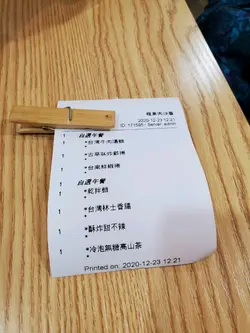 2020-12-23 12:21
ID: 171595 - Server: admin
1 自選午餐
1 *台灣牛肉湯麵
1 *古早味炸排捲
1 *台南蝦捲
1 自選午餐
1 *乾拌麵
1 *台灣林士香腸
1 *酥炸甜不辣
1 *冷泡無糖高山茶
Printed on: 2020-12-23 12:21